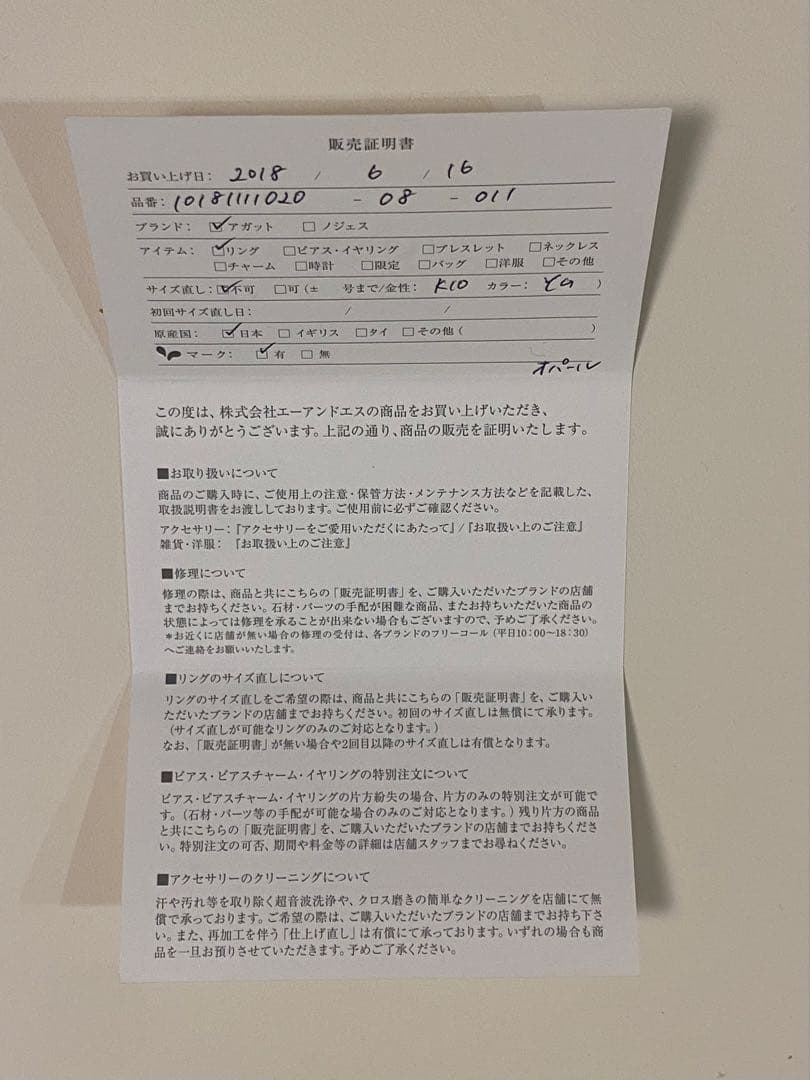 販売証明書
お買い上げ日： 2018 / 6 / 16
品番：10181111020 - 08 - 011
ブランド： ☑アガット □ノジェス
アイテム：☑リング □ピアス・イヤリング □ブレスレット □ネックレス
□チャーム □時計 □限定 □バッグ □洋服 □その他
サイズ直し：☑不可 □可（± 号まで/金性： K10 カラー： YG ）
初回サイズ直し日： / /
原産国： ☑日本 □イギリス □タイ □その他（ ）
マーク： ☑有 □無
オパール
この度は、株式会社エーアンドエスの商品をお買い上げいただき、
誠にありがとうございます。上記の通り、商品の販売を証明いたします。
■お取り扱いについて
商品のご購入時に、ご使用上の注意・保管方法・メンテナンス方法などを記載した、
取扱説明書をお渡ししております。ご使用前に必ずご確認ください。
アクセサリー：『アクセサリーをご愛用いただくにあたって』/『お取扱い上のご注意』
雑貨・洋服： 『お取扱い上のご注意』
■修理について
修理の際は、商品と共にこちらの「販売証明書」を、ご購入いただいたブランドの店舗
までお持ちください。石材・パーツの手配が困難な商品、またお持ちいただいた商品の
状態によっては修理を承ることが出来ない場合もございますので、予めご了承ください。
＊お近くに店舗が無い場合の修理の受付は、各ブランドのフリーコール（平日10：00〜18：30）
へご連絡をお願いいたします。
■リングのサイズ直しについて
リングのサイズ直しをご希望の際は、商品と共にこちらの「販売証明書」を、ご購入い
ただいたブランドの店舗までお持ちください。初回のサイズ直しは無償にて承ります。
（サイズ直しが可能なリングのみのご対応となります。）
なお、「販売証明書」が無い場合や2回目以降のサイズ直しは有償となります。
■ピアス・ピアスチャーム・イヤリングの特別注文について
ピアス・ピアスチャーム・イヤリングの片方紛失の場合、片方のみの特別注文が可能で
す。（石材・パーツ等の手配が可能な場合のみのご対応となります。）残り片方の商品
と共にこちらの「販売証明書」を、ご購入いただいたブランドの店舗までお持ちくださ
い。特別注文の可否、期間や料金等の詳細は店舗スタッフまでお尋ねください。
■アクセサリーのクリーニングについて
汗や汚れ等を取り除く超音波洗浄や、クロス磨きの簡単なクリーニングを店舗にて無
償で承っております。ご希望の際は、ご購入いただいたブランドの店舗までお持ち下さ
い。また、再加工を伴う「仕上げ直し」は有償にて承っております。いずれの場合も商
品を一旦お預りさせていただきます。予めご了承ください。